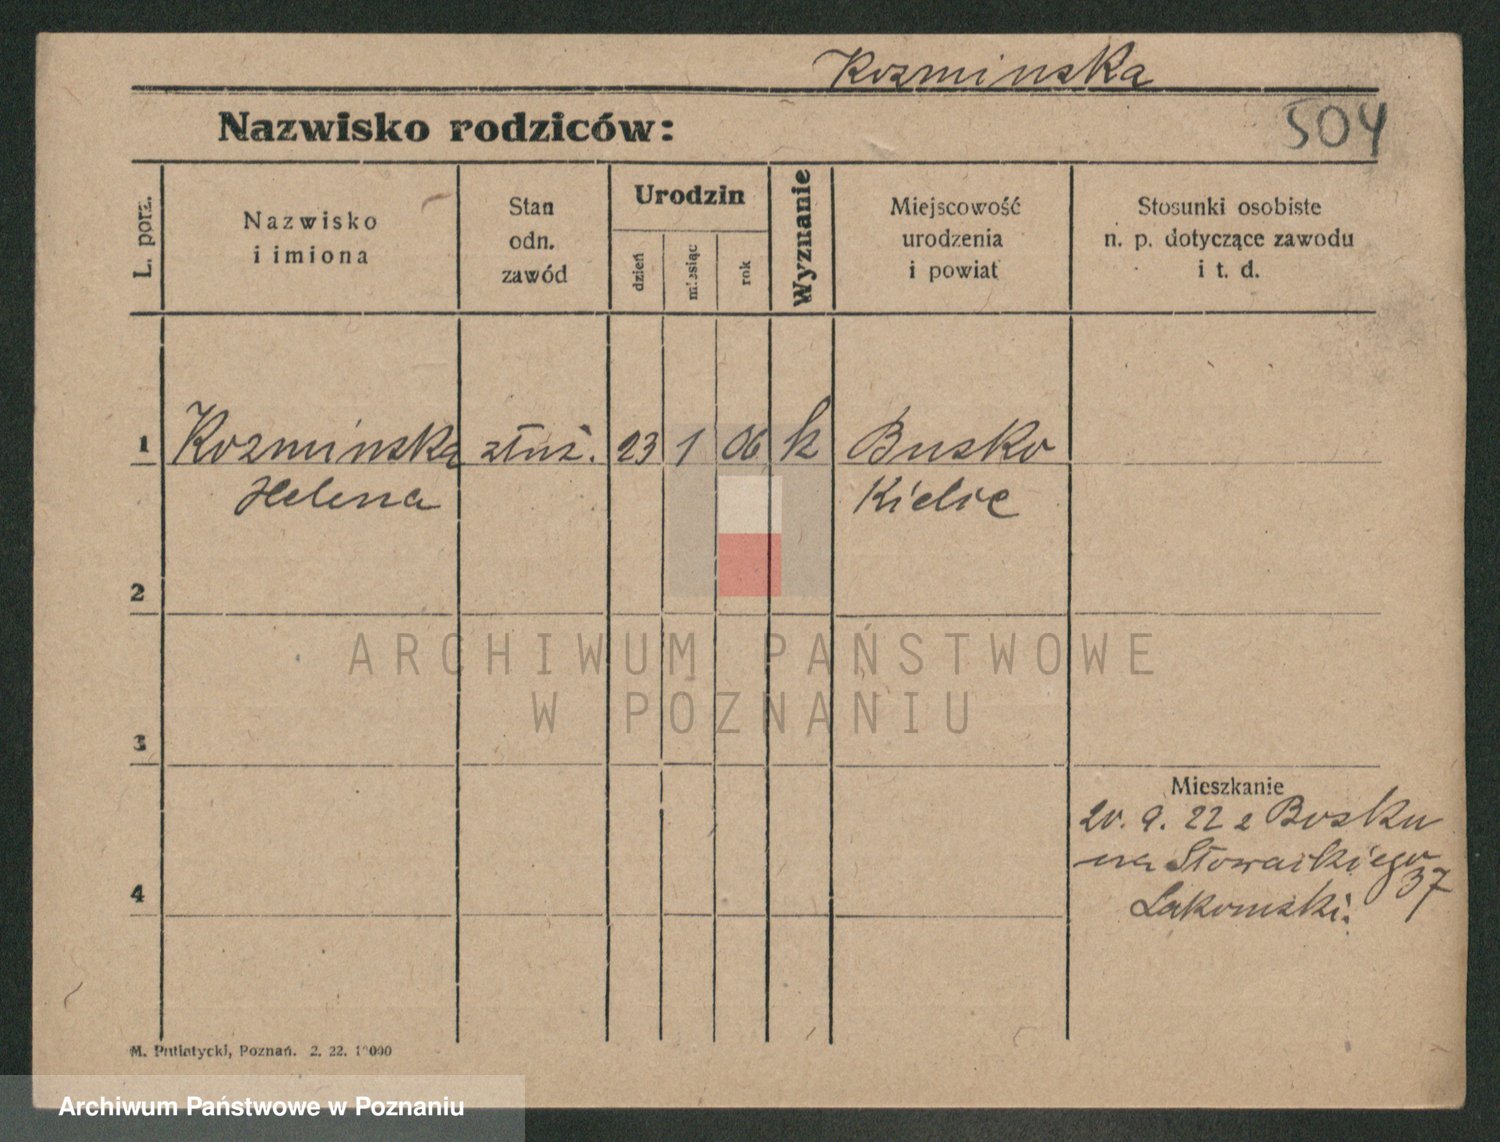 Kozminska
Nazwisko rodziców:
504
L. porz.
Nazwisko
i imiona
Stan
odn.
zawód
Urodzin
dzień
miesiąc
rok
Wyznanie
Miejscowość
urodzenia
i powiat
Stosunki osobiste
n. p. dotyczące zawodu
i t. d.
1 Kozminska służ. 23 1 06 k Busko
Helena Kielce
2
ARCHIWUM PAŃSTWOWE
W POZNANIU
3
Mieszkanie
20. 9. 22 z Busku
na Słowackiego
37
4
Lakomski.
M. Putiatycki, Poznań. 2. 22. 10000
Archiwum Państwowe w Poznaniu